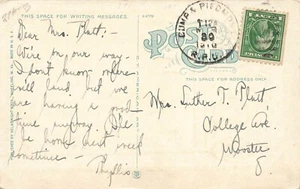 THIS SPACE FOR WRITING MESSAGES.
Dear Mrs. Platt:-
We're on our way -
I don't know where
will land but we
are having a good
time anyway. She
be home next week
sometime -
Phyllis
POST CARD
R.P.O.
THIS SPACE FOR ADDRESS
Mrs. Luther T. Platt,
College Ave.
Wooster
O